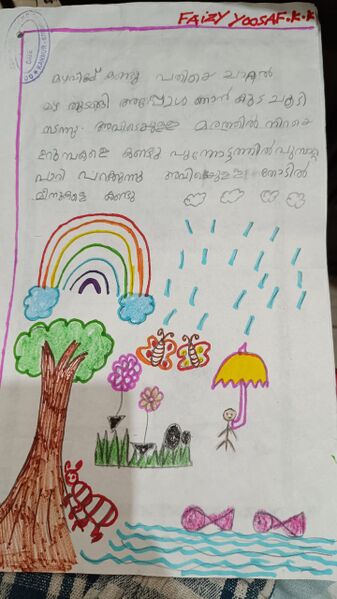 FAIZY YOOSAF.K.K
മഴവില്ല് കണ്ടു പതിയെ ചാറ്റൽ
മഴ തുടങ്ങി അപ്പോൾ ഞാൻ കുട ചൂടി
നടന്നു. അവിടെയുള്ള മരത്തിൽ നിറയെ
ഉറുമ്പുകളെ കണ്ടു പൂന്തോട്ടത്തിൽ പൂമ്പാറ്റ
പാറി പറക്കുന്നു അവിടെയുള്ള തോടിൽ
മീനുകളെ കണ്ടു